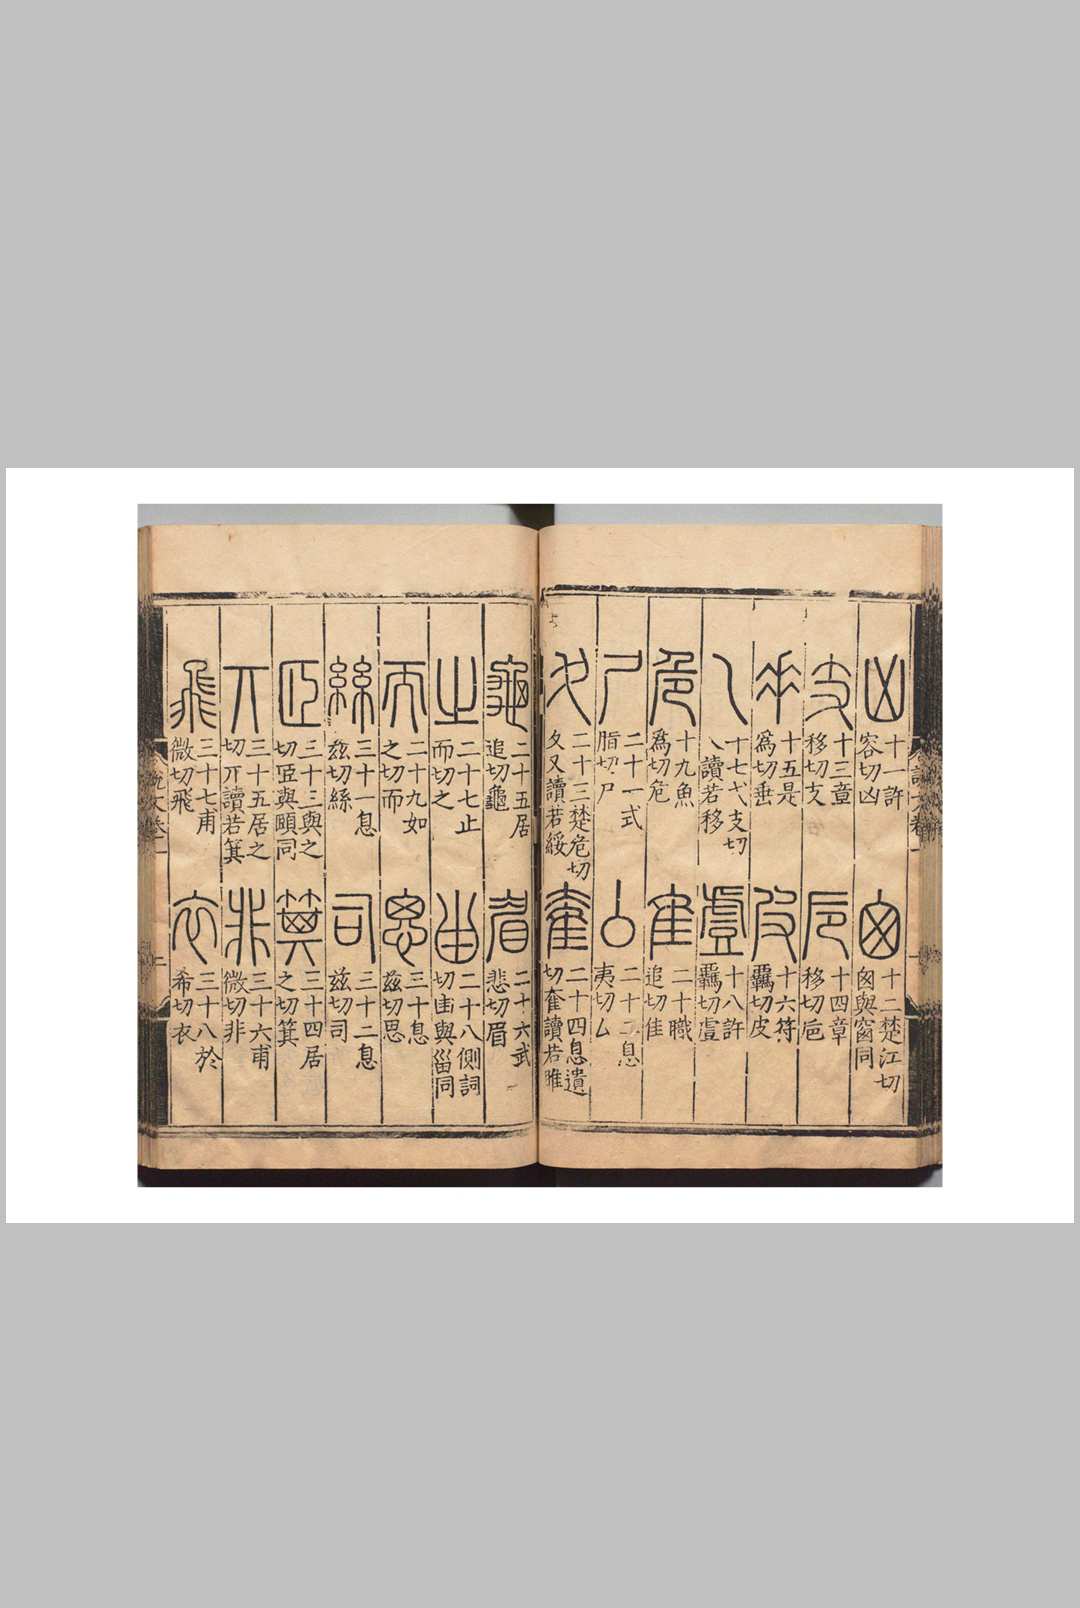 凶 十一許容切凶
囱 十二楚江切囱與窗同
支 十三章移切支
卮 十四章移切卮
𠂹 十五是爲切垂
皮 十六符羈切皮
乁 十七弋支切乁讀若移
虘 十八許羈切虘
危 十九魚爲切危
隹 二十職追切隹
尸 二十一式脂切尸
厶 二十二息夷切厶
夊 二十三楚危切夊又讀若綏
奞 二十四息遺切奞讀若睢
龜 二十五居追切龜
眉 二十六武悲切眉
之 二十七止而切之
甾 二十八側詞切甾與甾同
而 二十九如之切而
思 三十息兹切思
絲 三十一息兹切絲
司 三十二息兹切司
𦣝 三十三與之切𦣝與頤同
箕 三十四居之切箕
丌 三十五居之切丌讀若箕
非 三十六甫微切非
飛 三十七甫微切飛
衣 三十八於希切衣